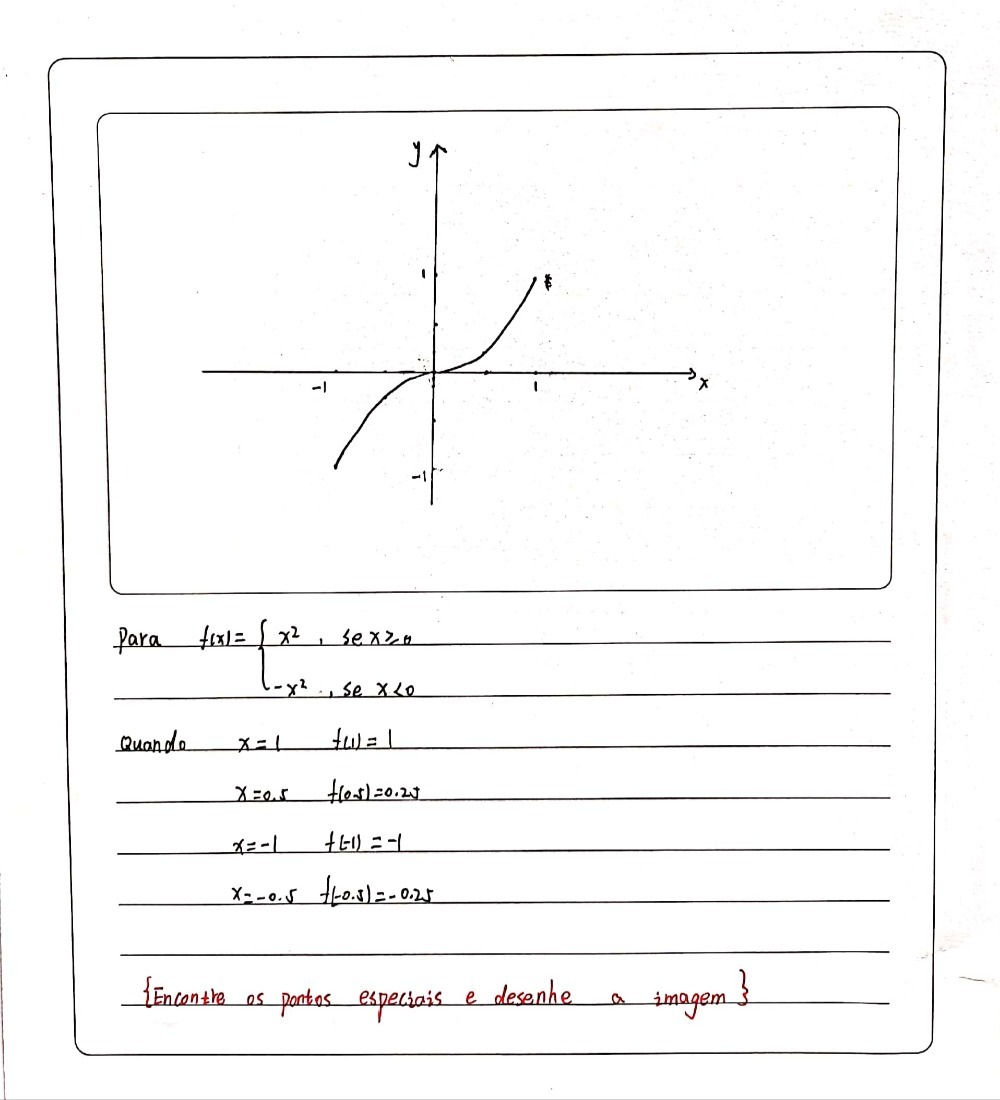 y
1
-1
1
x
-1
Para f(x)= { x² , se x≥0
-x² , se x<0
Quando x=1 f(1)=1
x=0.5 f(0.5)=0.25
x=-1 f(-1)=-1
x=-0.5 f(-0.5)=-0.25
{Encontre os pontos especiais e desenhe a imagem}